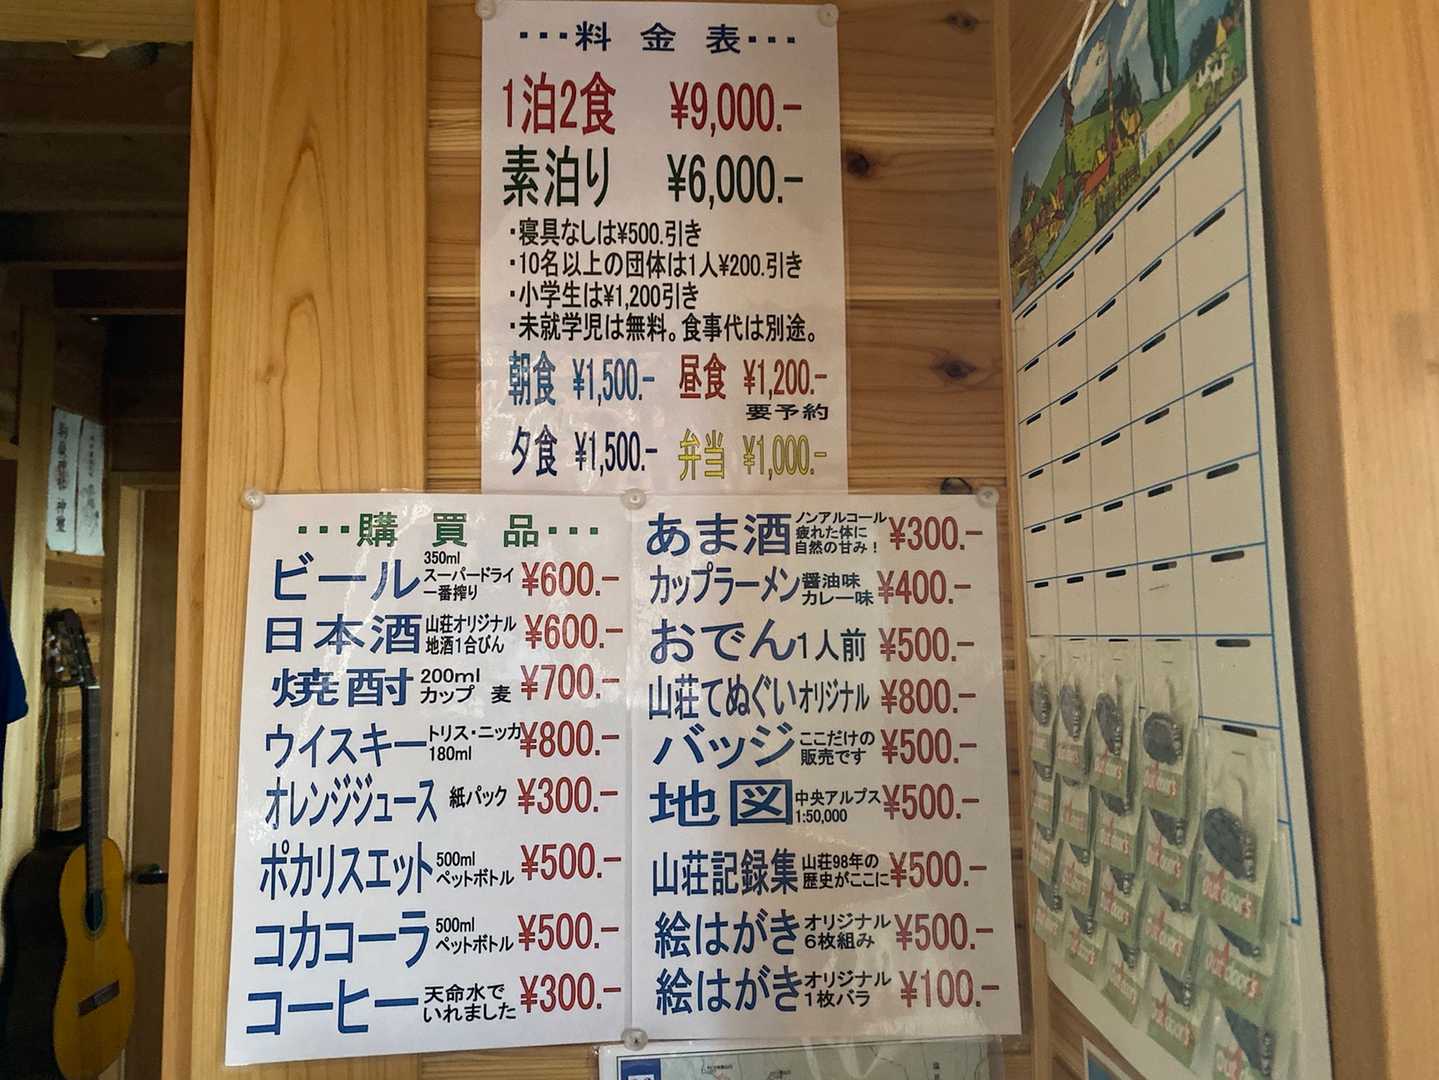 ・・・料金表・・・
1泊2食 ¥9,000.-
素泊り ¥6,000.-
・寝具なしは¥500.引き
・10名以上の団体は1人¥200.引き
・小学生は¥1,200引き
・未就学児は無料。食事代は別途。
朝食 ¥1,500.- 昼食 ¥1,200.-
要予約
夕食 ¥1,500.- 弁当 ¥1,000.-
・・・購買品・・・
ビール 350ml スーパードライ 一番搾り ¥600.-
日本酒 山荘オリジナル 地酒1合びん ¥600.-
焼酎 200ml カップ 麦 ¥700.-
ウイスキー トリス・ニッカ 180ml ¥800.-
オレンジジュース 紙パック ¥300.-
ポカリスエット 500ml ペットボトル ¥500.-
コカコーラ 500ml ペットボトル ¥500.-
コーヒー 天命水で いれました ¥300.-
あま酒 ノンアルコール 疲れた体に 自然の甘み! ¥300.-
カップラーメン 醤油味 カレー味 ¥400.-
おでん 1人前 ¥500.-
山荘てぬぐい オリジナル ¥800.-
バッジ ここだけの 販売です ¥500.-
地図 中央アルプス 1:50,000 ¥500.-
山荘記録集 山荘98年の 歴史がここに ¥500.-
絵はがき オリジナル 6枚組み ¥500.-
絵はがき オリジナル 1枚バラ ¥100.-